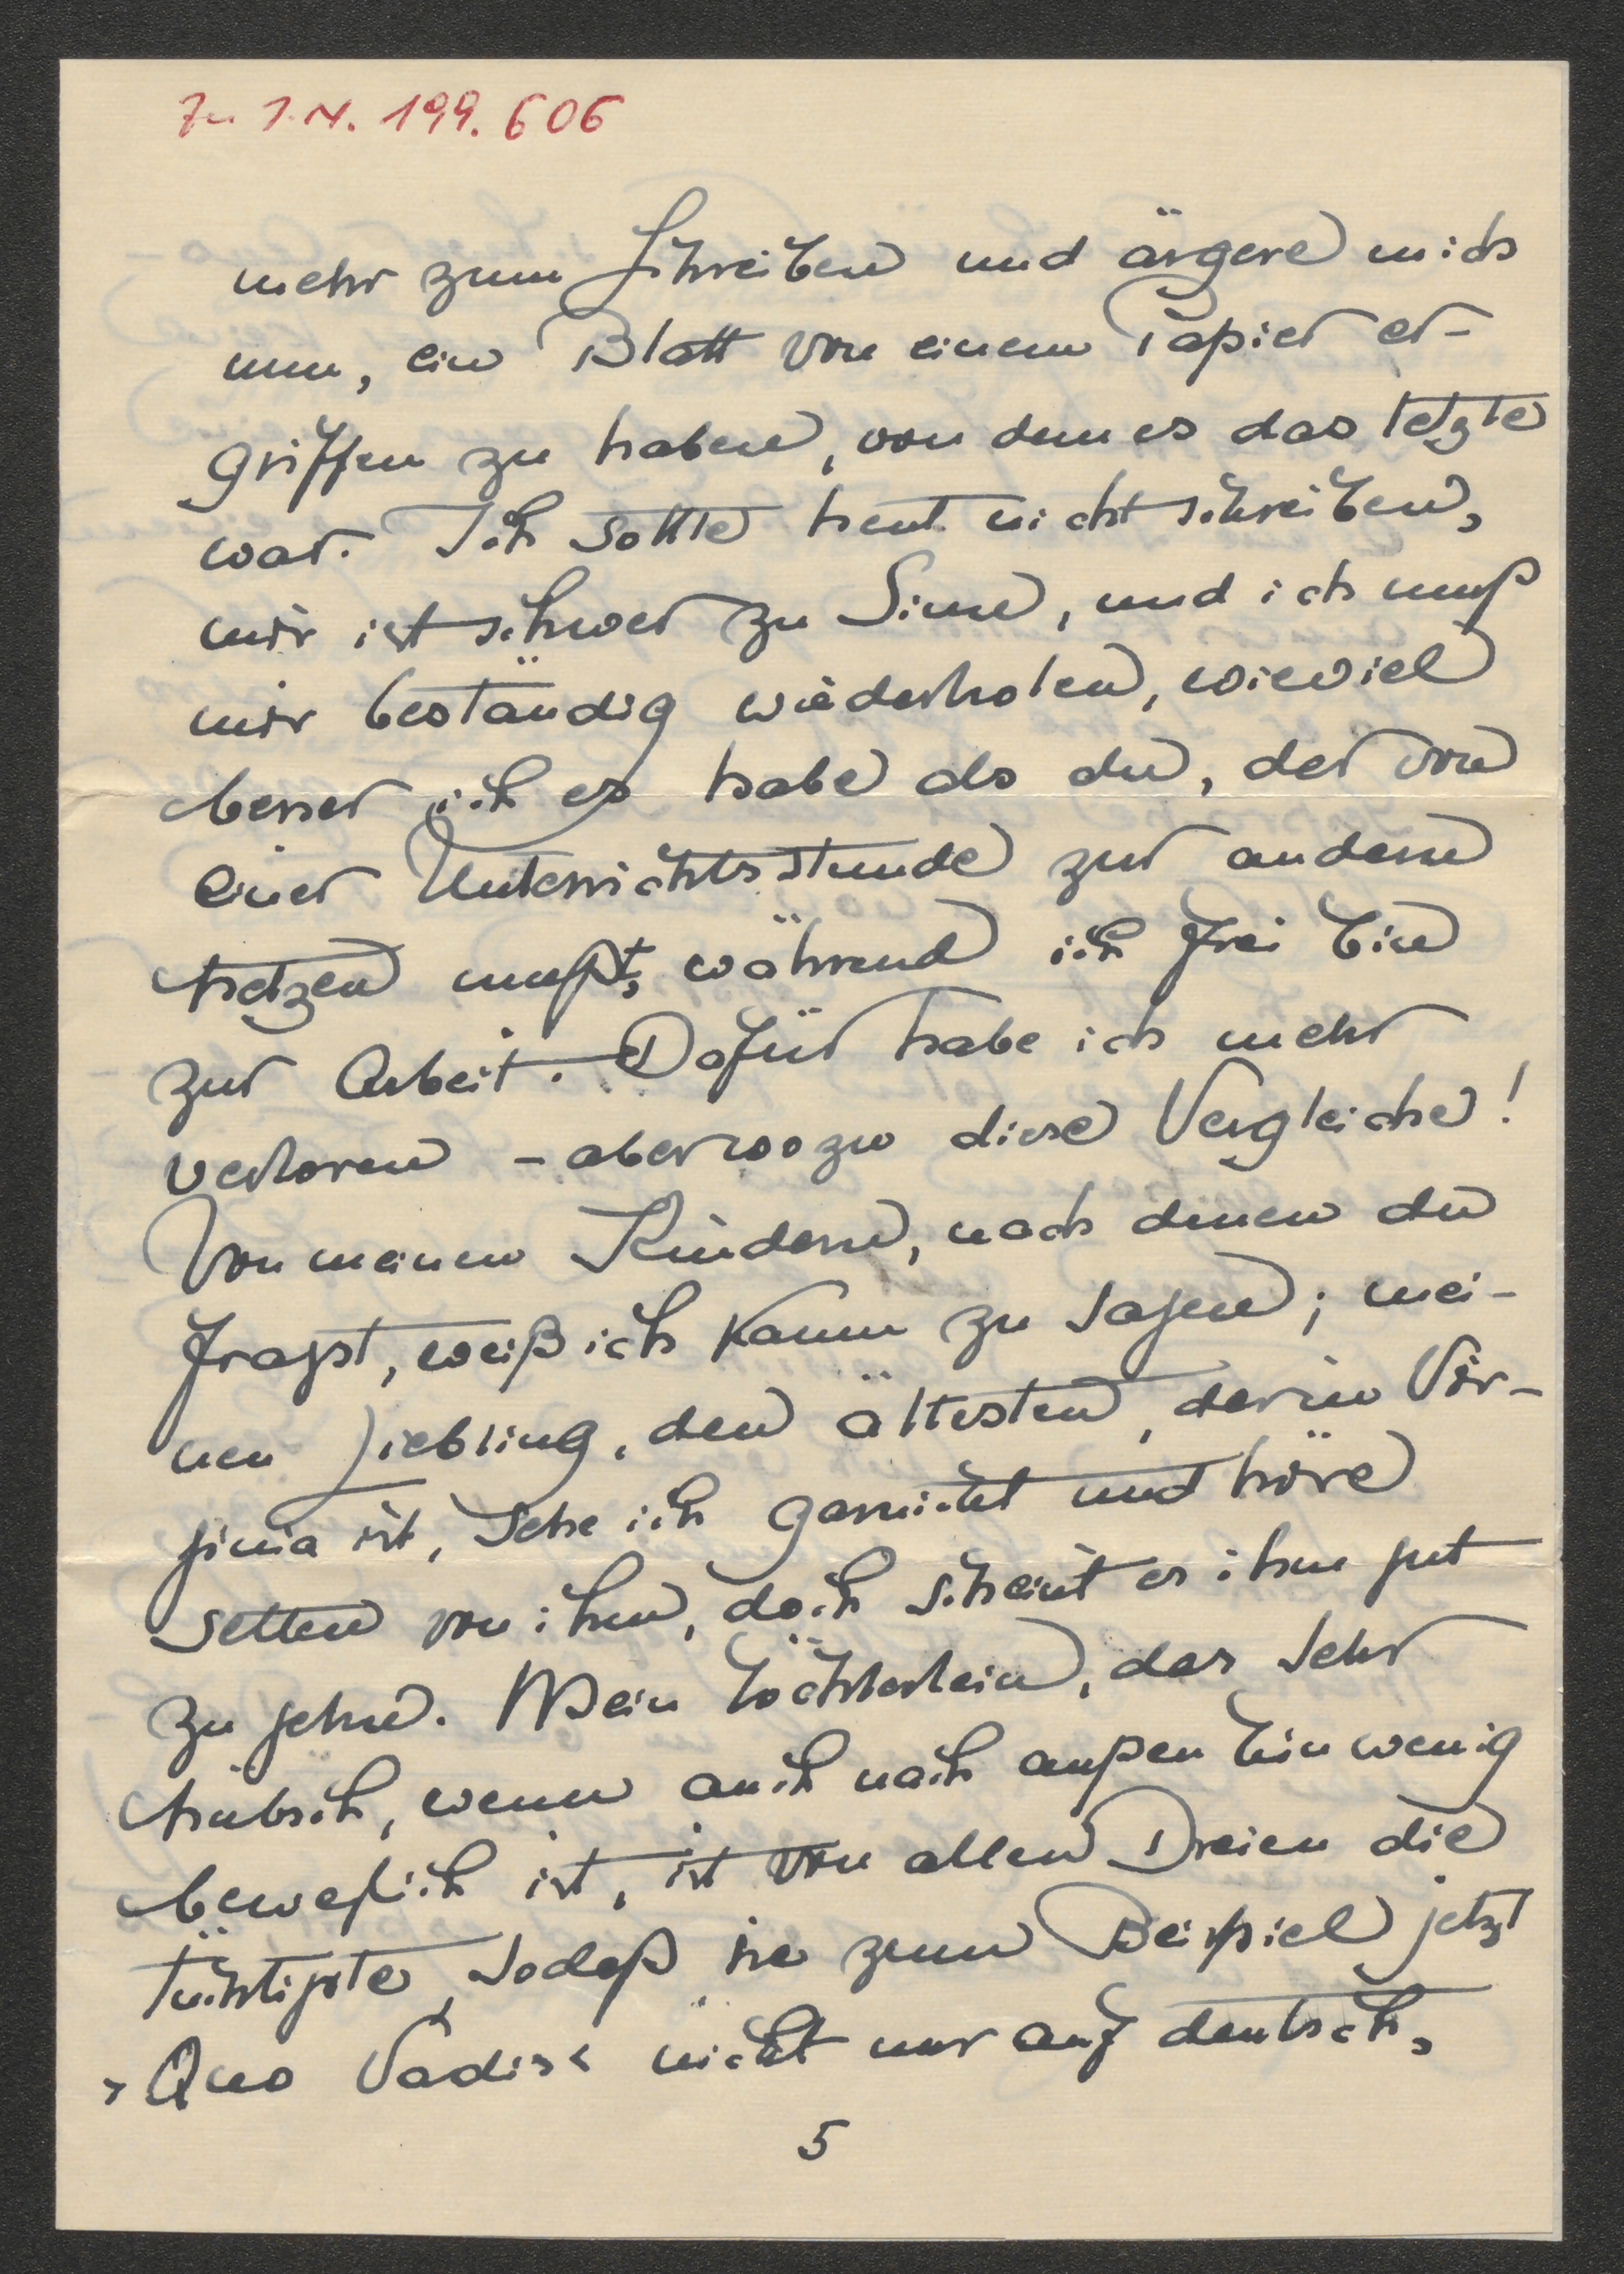 Zu I.N. 199.606
mehr zum Schreiben und ärgere mich
nun, ein Blatt von einem Papier er-
griffen zu haben, von dem es das letzte
war. Ich sollte heut nicht schreiben,
mir ist schwer zu Sinne, und ich muß
mir beständig wiederholen, wieviel
besser ich es habe als du, der von
einer Unterrichtsstunde zur andern
hetzen mußt, während ich frei bin
zur Arbeit. Dafür habe ich mehr
verloren – aber wozu diese Vergleiche!
Von meinen Kindern, nach denen du
fragst, weiß ich kaum zu sagen; mei-
nen Liebling, den ältesten, der in Vir-
ginia ist, sehe ich garnicht und höre
selten von ihm, doch scheint es ihm gut
zu gehn. Mein Töchterlein, das sehr
hübsch, wenn auch nach außen hin wenig
beweglich ist, ist von allen Dreien die
tüchtigste, sodaß sie zum Beispiel jetzt
»Quo Vadis« nicht nur auf deutsch,
5